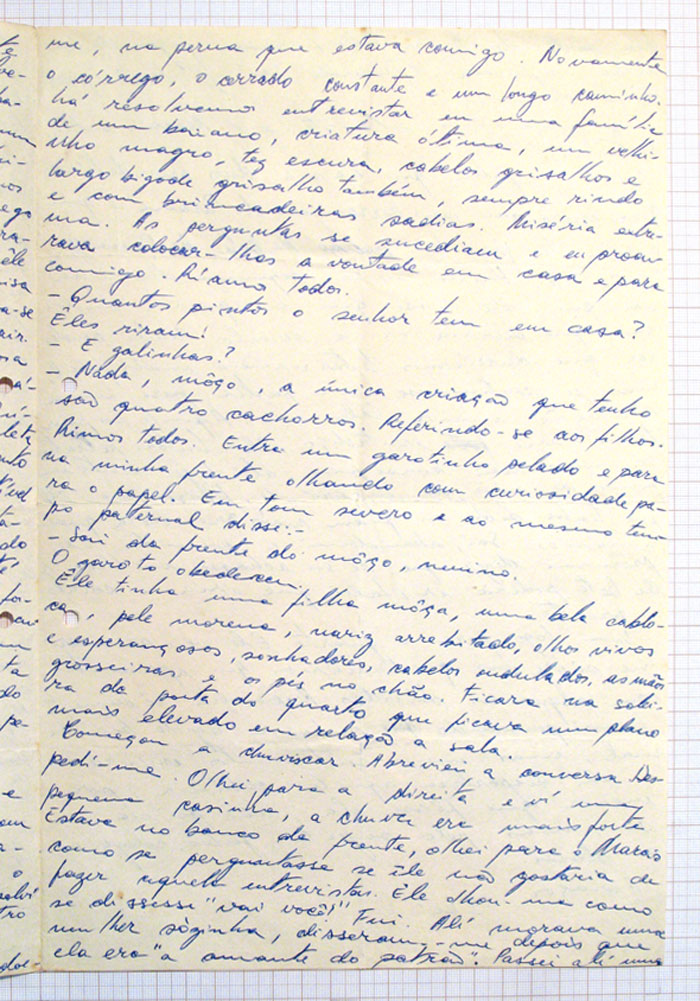 me, na perua que estava comigo. Novamente
o córrego, o cerrado constante e um longo caminho.
há resolvemos entrevistar eu uma família
de um baiano, criatura ótima, um velhi-
nho magro, tez escura, cabelos grisalhos e
largo bigode grisalho também, sempre rindo
e com brincadeiras sadias. Miséria extre-
ma. As perguntas se sucediam e eu procu-
rava colocar-lhos a vontade em casa e para
comigo. Riamo todos.
- Quantos pintos o senhor tem em casa?
Êles riram!
- E galinhas?
- Nada, môço, a única criação que tenho
são quatro cachorros. Referindo-se aos filhos.
Rimos todos. Entra um garotinho pelado e para
na minha frente olhando com curiosidade pa-
ra o papel. Em tom severo e ao mesmo tem-
po paternal disse:-
- Sai da frente do môço, menino.
O garoto obedeceu.
Ele tinha uma filha môça, uma bela cablo-
ca, pele morena, nariz arrebitado, olhos vivos
e esperançosos, sonhadores, cabelos ondulados, as mãos
grosseiras e os pés no chão. Ficara na solei-
ra da porta do quarto que ficava num plano
mais elevado em relação a sala.
Começou a chuviscar. Abreviei a conversa Des-
pedi-me. Olhei para a direita e vi uma
pequena casinha, a chuva era mais forte
Estava no banco da frente, olhei para o Marais
como se perguntasse se êle não gostaria de
fazer aquela entrevistas. Êle olhou-me como
se dissesse "vai você!" Fui. Ali morava uma
mulher sòzinha, disseram-me depois que
ela era "a amante do patrão". Passei ali uma